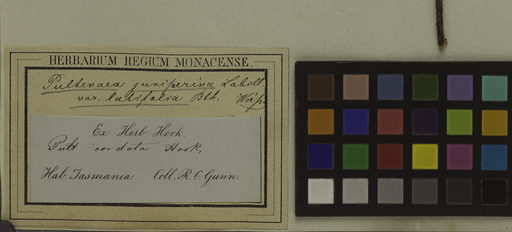 HERBARIUM REGIUM MONACENSE.
Pultenaea juniperina Labill.
var. latifolia Bth.
Ex Herb Hook.
Pult cordata Hook,
Hab. Tasmania. Coll. R. C. Gunn.